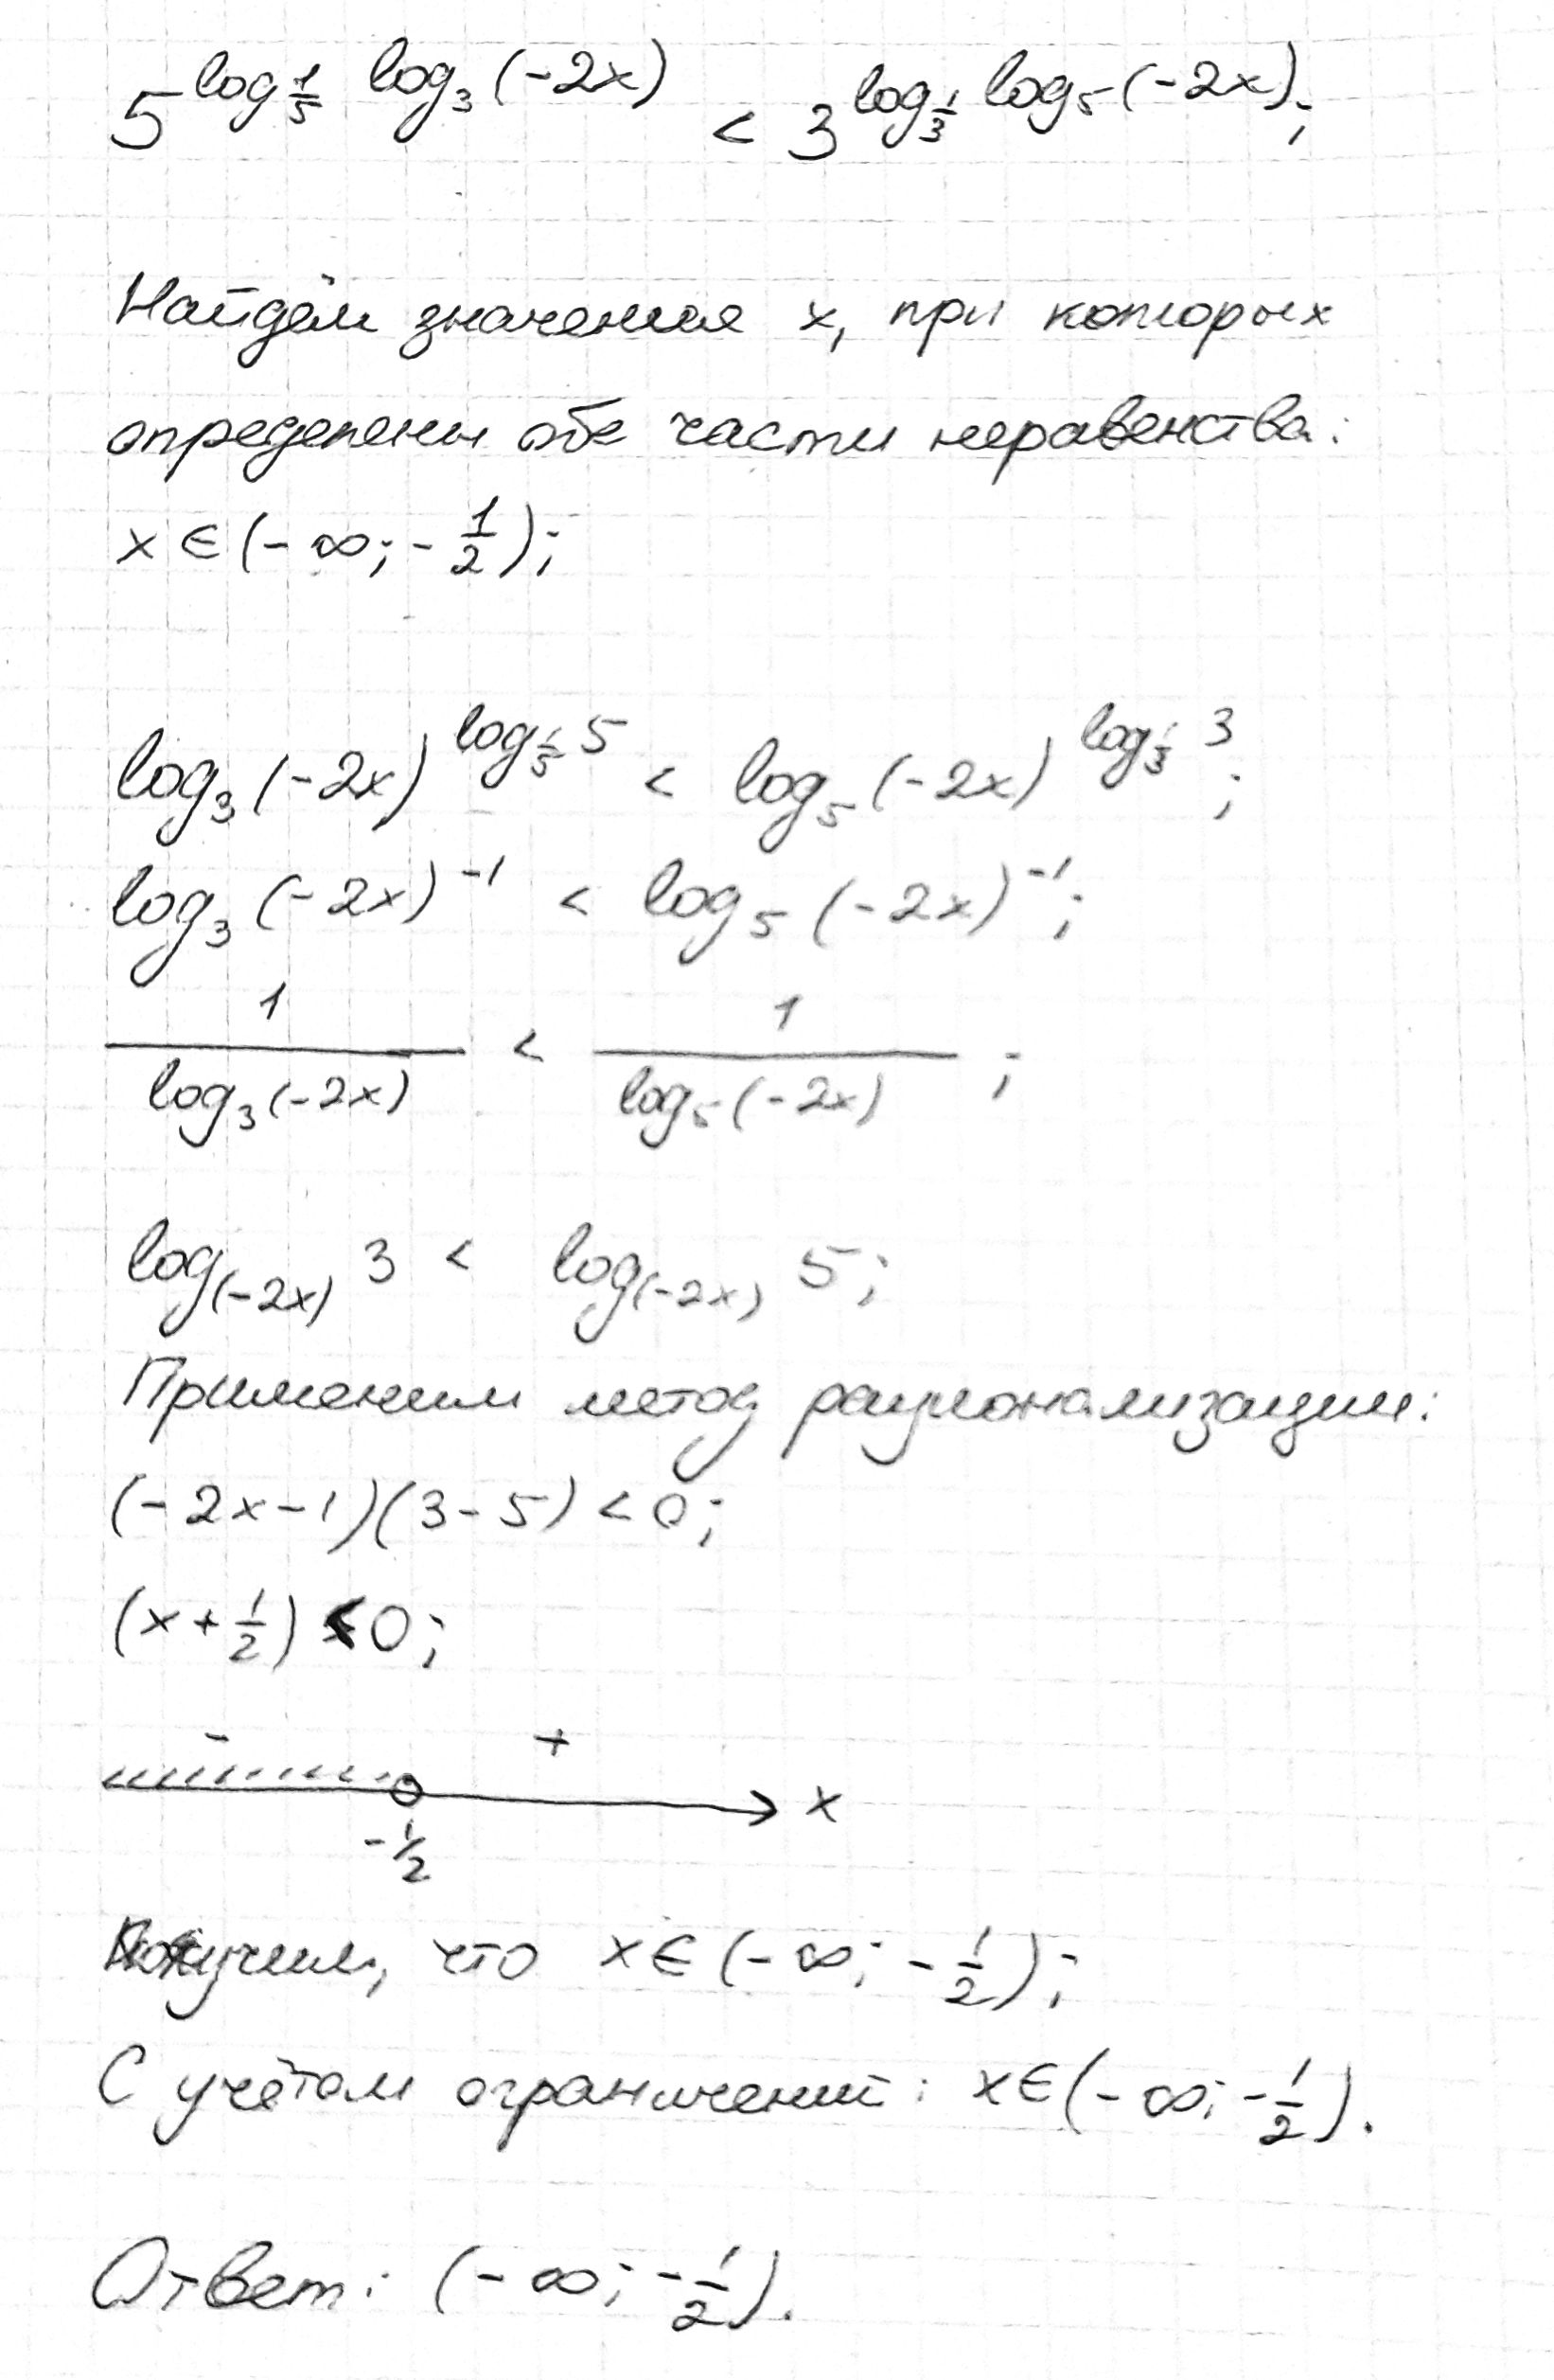 5^{log_{1/5} log_3(-2x)} < 3^{log_{1/3} log_5(-2x)};
Найдём значения x, при которых
определены обе части неравенства:
x ∈ (-∞; -1/2);
log_3(-2x)^{log_{1/5} 5} < log_5(-2x)^{log_{1/3} 3};
log_3(-2x)^{-1} < log_5(-2x)^{-1};
1/log_3(-2x) < 1/log_5(-2x);
log_{(-2x)} 3 < log_{(-2x)} 5;
Применим метод рационализации:
(-2x-1)(3-5) < 0;
(x + 1/2) < 0;
- +
x
-1/2
Получим, что x ∈ (-∞; -1/2);
С учётом ограничений: x ∈ (-∞; -1/2).
Ответ: (-∞; -1/2).